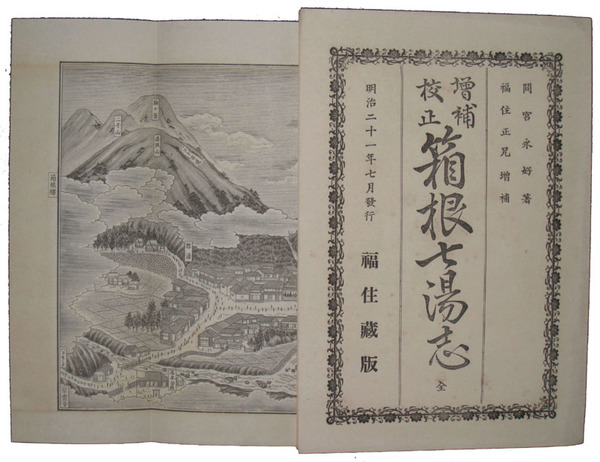 間宮永好著
福住正兄增補
增補
校正
箱根七湯志
全
明治二十一年七月發行
福住藏版
二子山